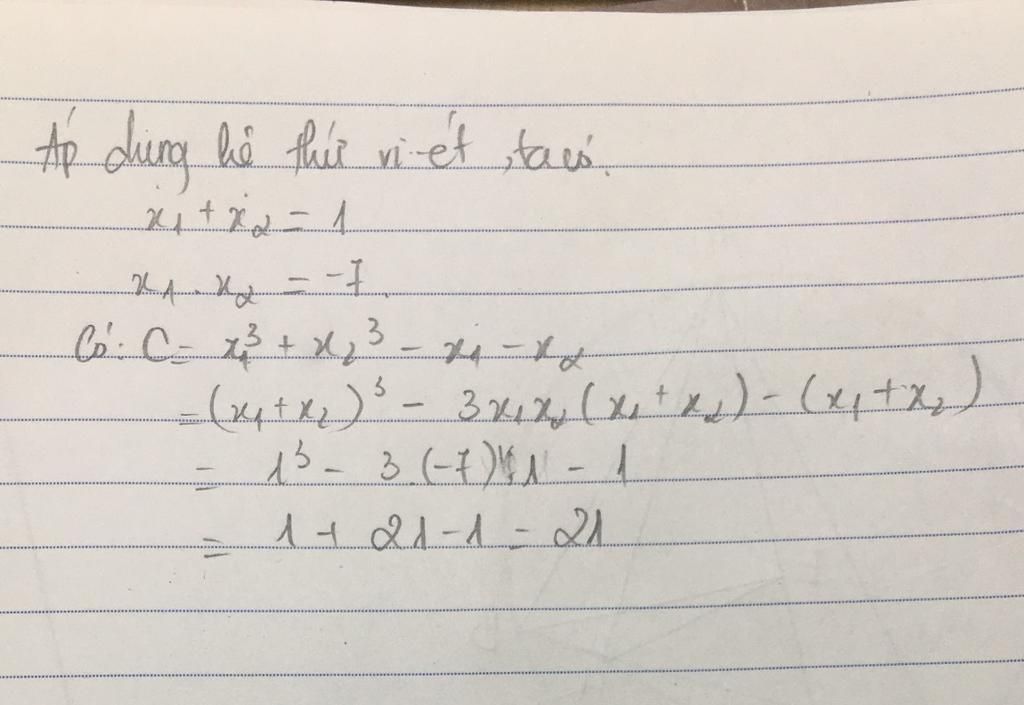 Áp dụng hệ thức vi-ét, ta có.
x₁ + x₂ = 1
x₁ . x₂ = -7.
Có: C = x₁³ + x₂³ - x₁ - x₂
= (x₁ + x₂)³ - 3x₁x₂(x₁ + x₂) - (x₁ + x₂)
= 1³ - 3.(-7).1 - 1
= 1 + 21 - 1 = 21